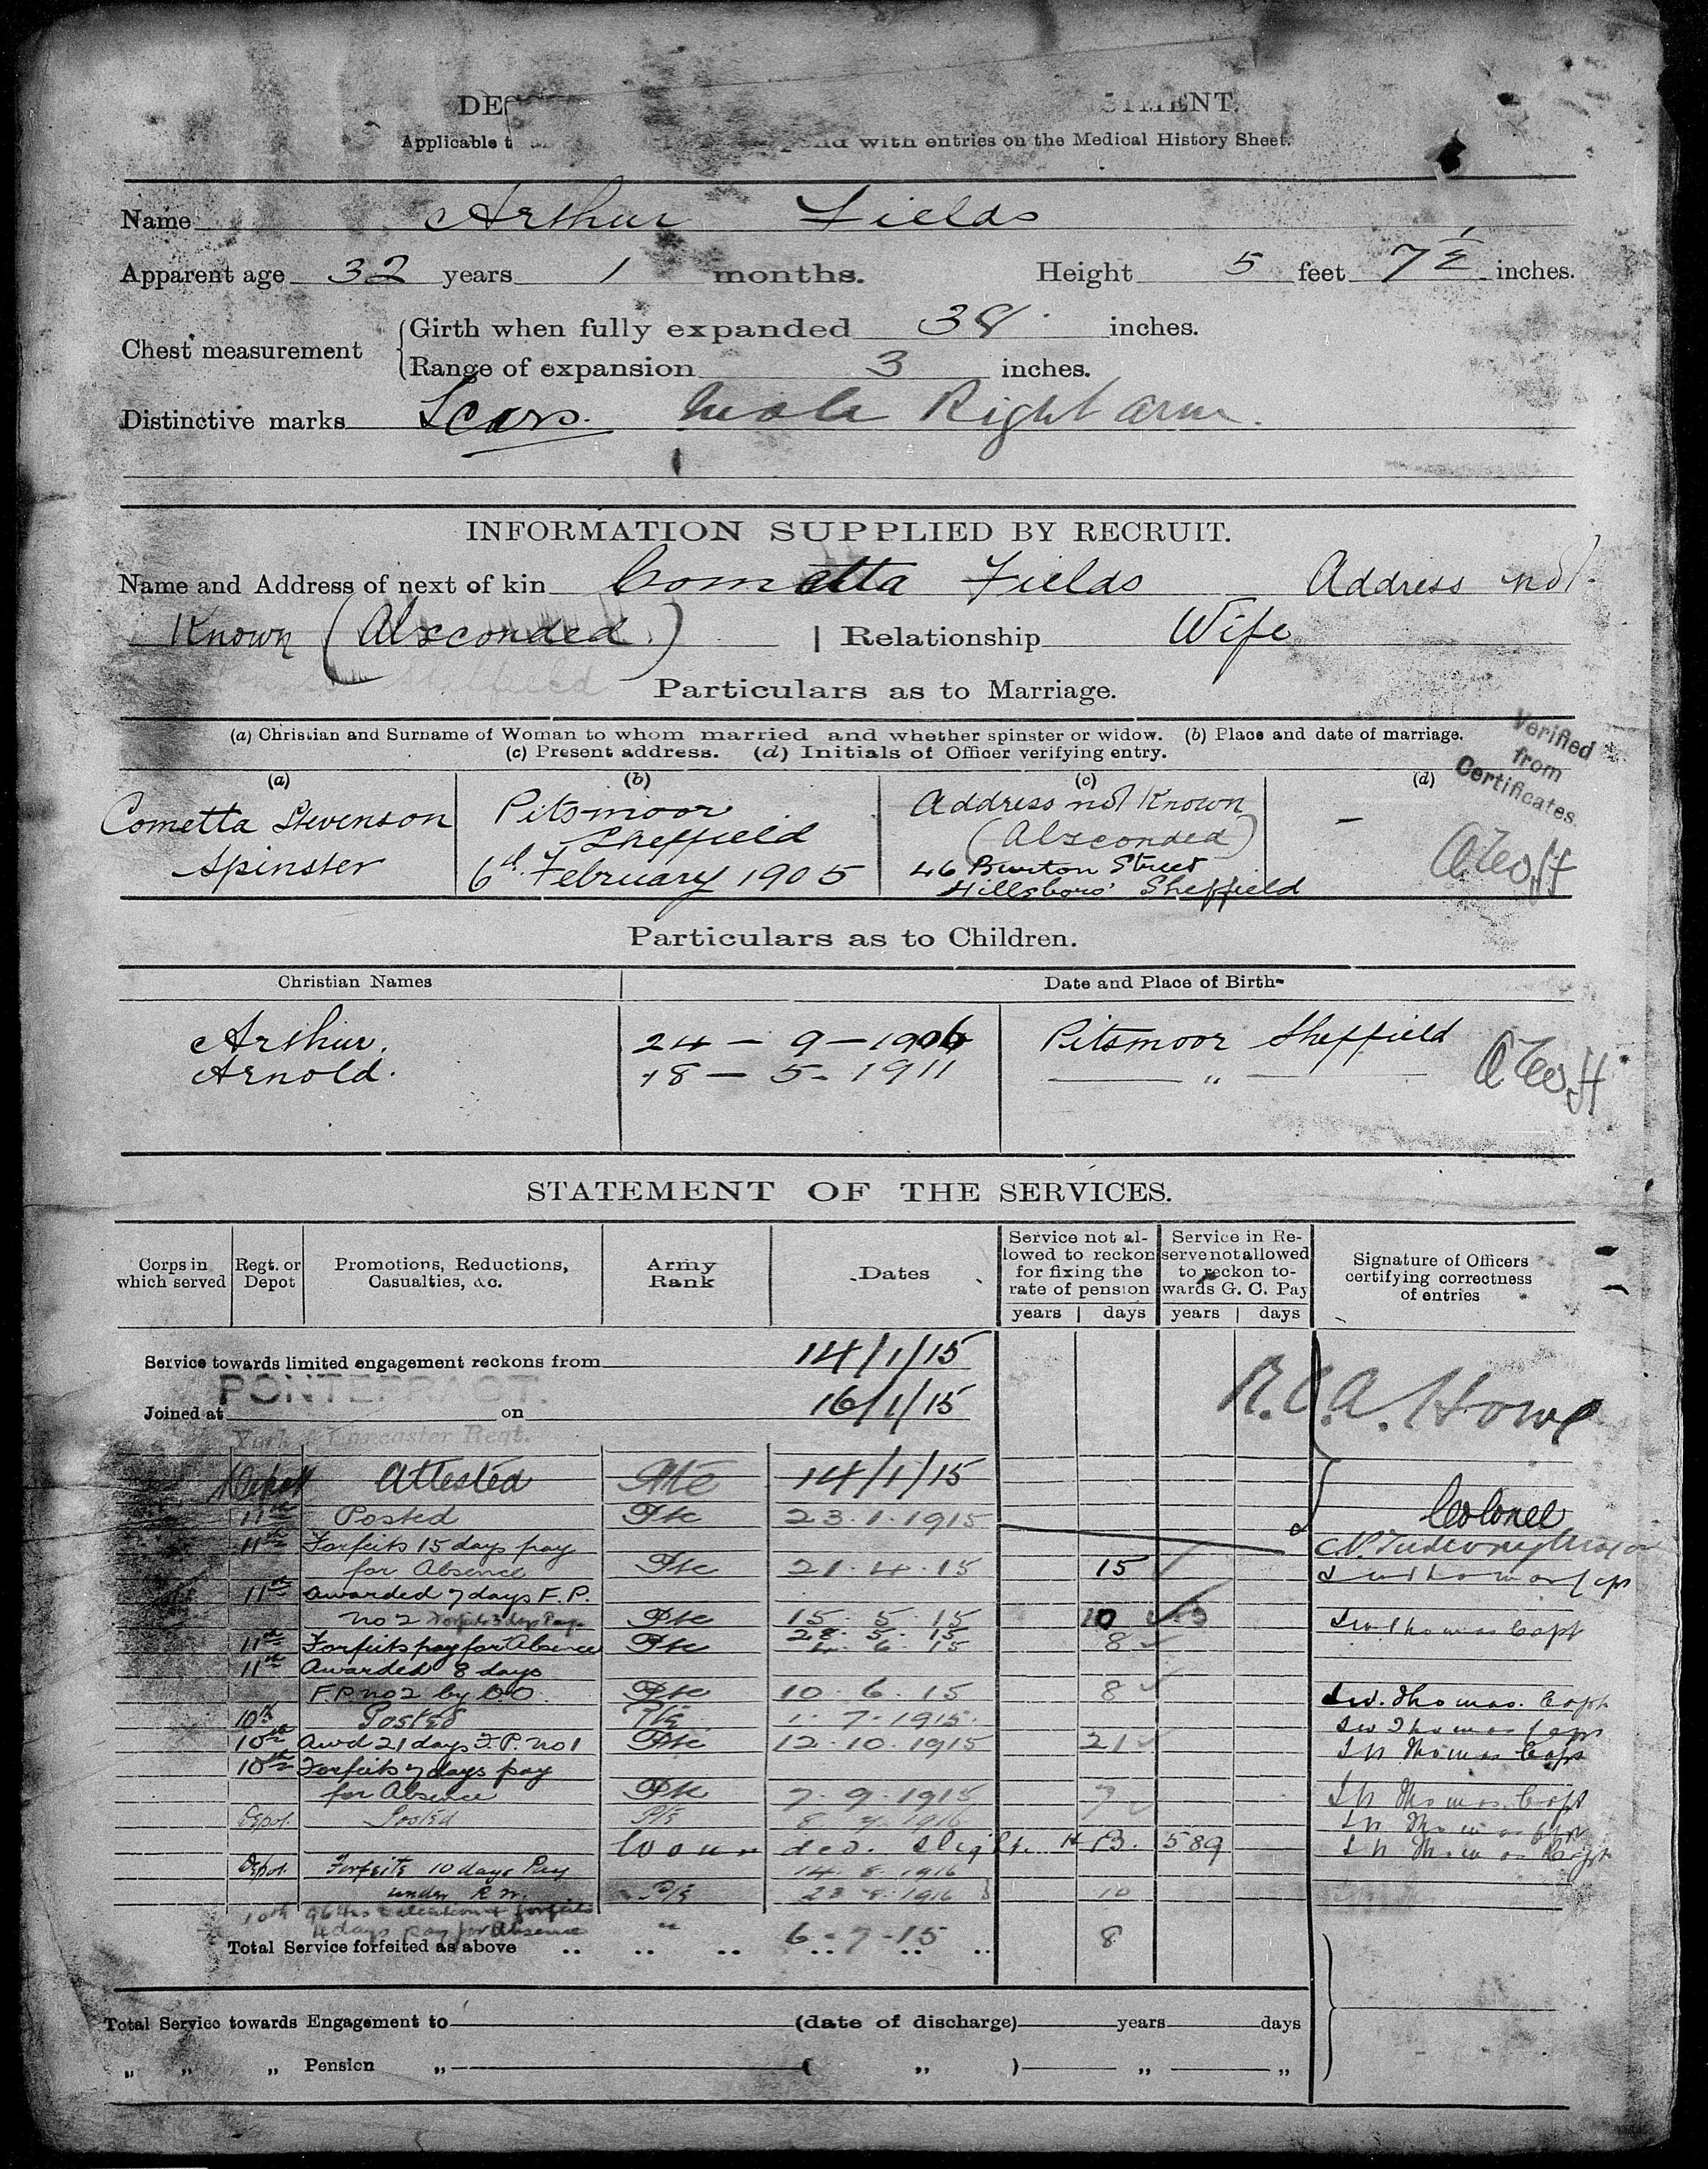 DE STMENT.
Applicable with entries on the Medical History Sheet.
Name Arthur Fields
Apparent age 32 years 1 months. Height 5 feet 7½ inches.
Chest measurement
Girth when fully expanded 38 inches.
Range of expansion 3 inches.
Distinctive marks Scars. Mole Right arm.
INFORMATION SUPPLIED BY RECRUIT.
Name and Address of next of kin Cometta Fields Address not
Known (Absconded) | Relationship Wife
Sheffield
Particulars as to Marriage.
(a) Christian and Surname of Woman to whom married and whether spinster or widow. (b) Place and date of marriage.
(c) Present address. (d) Initials of Officer verifying entry.
Verified from Certificates.
(a) (b) (c) (d)
Cometta Stevenson Pitsmoor Address not Known
Spinster Sheffield (Absconded)
6th February 1905 46 Burton Street
Hillsboro' Sheffield
Particulars as to Children.
Christian Names Date and Place of Birth
Arthur. 24 - 9 - 1906 Pitsmoor Sheffield
Arnold. 18 - 5 - 1911 — " —
STATEMENT OF THE SERVICES.
Corps in which served
Regt. or Depot
Promotions, Reductions, Casualties, &c.
Army Rank
Dates
Service not allowed to reckon for fixing the rate of pension
years | days
Service in Reserve not allowed to reckon towards G. C. Pay
years | days
Signature of Officers certifying correctness of entries
Service towards limited engagement reckons from 14/1/15
PONTEFRACT.
Joined at on 16/1/15 R.C.A. Howe
York & Lancaster Regt.
Depot Attested Pte 14/1/15
11th Posted Pte 23.1.1915 Colonel
11th Forfeits 15 days pay
for Absence Pte 21.4.15 15
11th Awarded 7 days F.P.
No 2 Forfeits 3 days Pay Pte 15.5.15 10 Thomas Capt
11th Forfeits pay for Absence Pte 28.5.15 6.15 8
11th Awarded 8 days
F.P. no 2 by C.O. Pte 10.6.15 8 Thomas. Capt
10th Posted Pte 1.7.1915. Thomas Capt
10th Awd 21 days F.P. No 1 Pte 12.10.1915 21 Thomas Capt
10th Forfeits 7 days pay
for Absence Pte 7.9.1915 7 Thomas Capt
Depot Posted Pte 8 1916 Thomas
Wounded. Slight. H B. 589 Thomas Capt
Depot Forfeits 10 days Pay 14.8.1916
under R.W. Pte 23.8.1916 10
10th 96 Hrs detention & forfeits
4 days pay for Absence " 6-7-15 8
Total Service forfeited as above
Total Service towards Engagement to (date of discharge) years days
" " " Pension " ( " ) " "